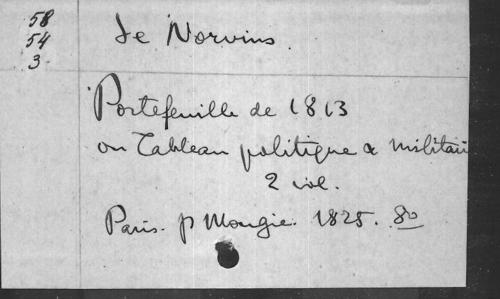 58
54
3
de Norvins.
Portefeuille de 1813
ou Tableau politique & militair
2 vol.
Paris. p Mongie. 1825. 8o